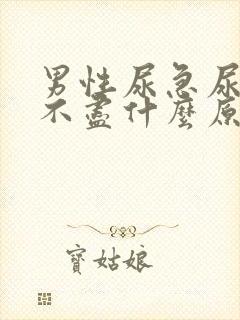 男性尿急尿
不盡什麼原
寶姑娘